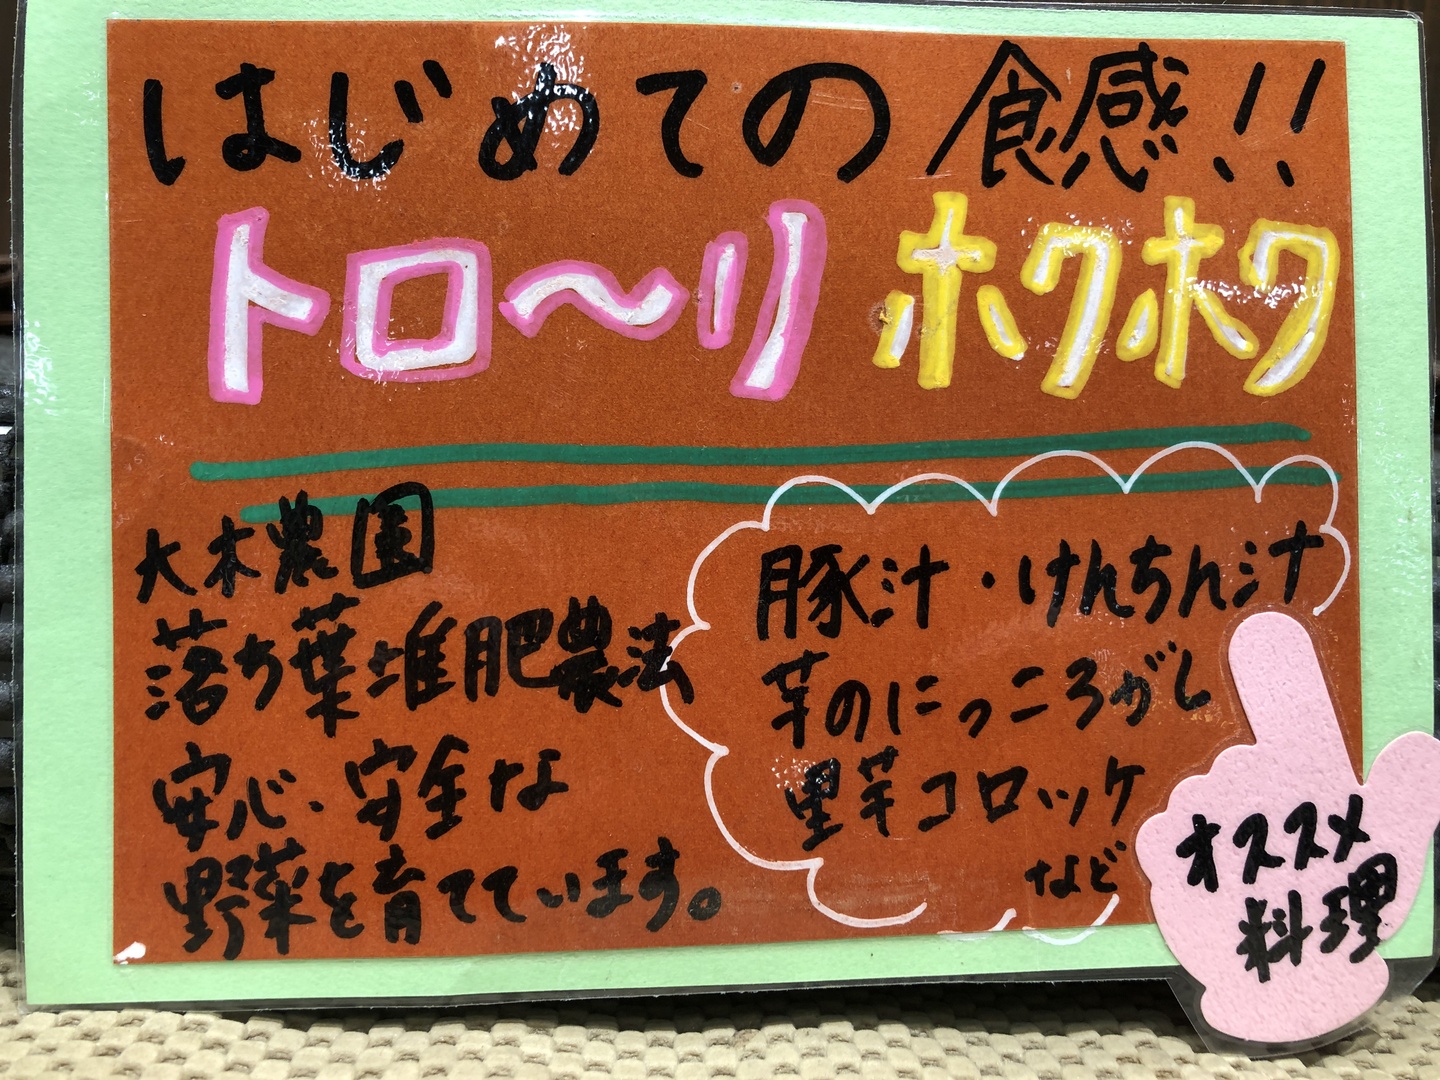 はじめての食感!!
トロ〜リ ホクホク
大木農園
落ち葉堆肥農法
安心・安全な
野菜を育てています。
豚汁・けんちん汁
芋のにっころがし
里芋コロッケ
など
オススメ
料理